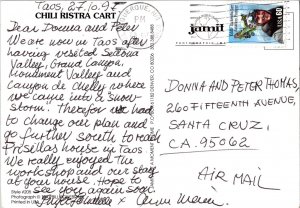 Taos, 27.10.97
CHILI RISTRA CART
Dear Donna and Peter
We are now in Taos after
having visited Sedona
Valley, Grand Canyon,
Monument Valley and
Canyon de Chelly where
we came into a snow
storm. Therefor we had
to change our plan and
go further south to reach
Prisillas house in Taos
We really enjoyed the
workshop and our stay
at your house. Hope to
see you again soon.
PM
jamil
USA
DONNA AND PETER THOMAS,
260 FIFTEENTH AVENUE,
SANTA CRUZ,
CA. 95062
AIR MAIL